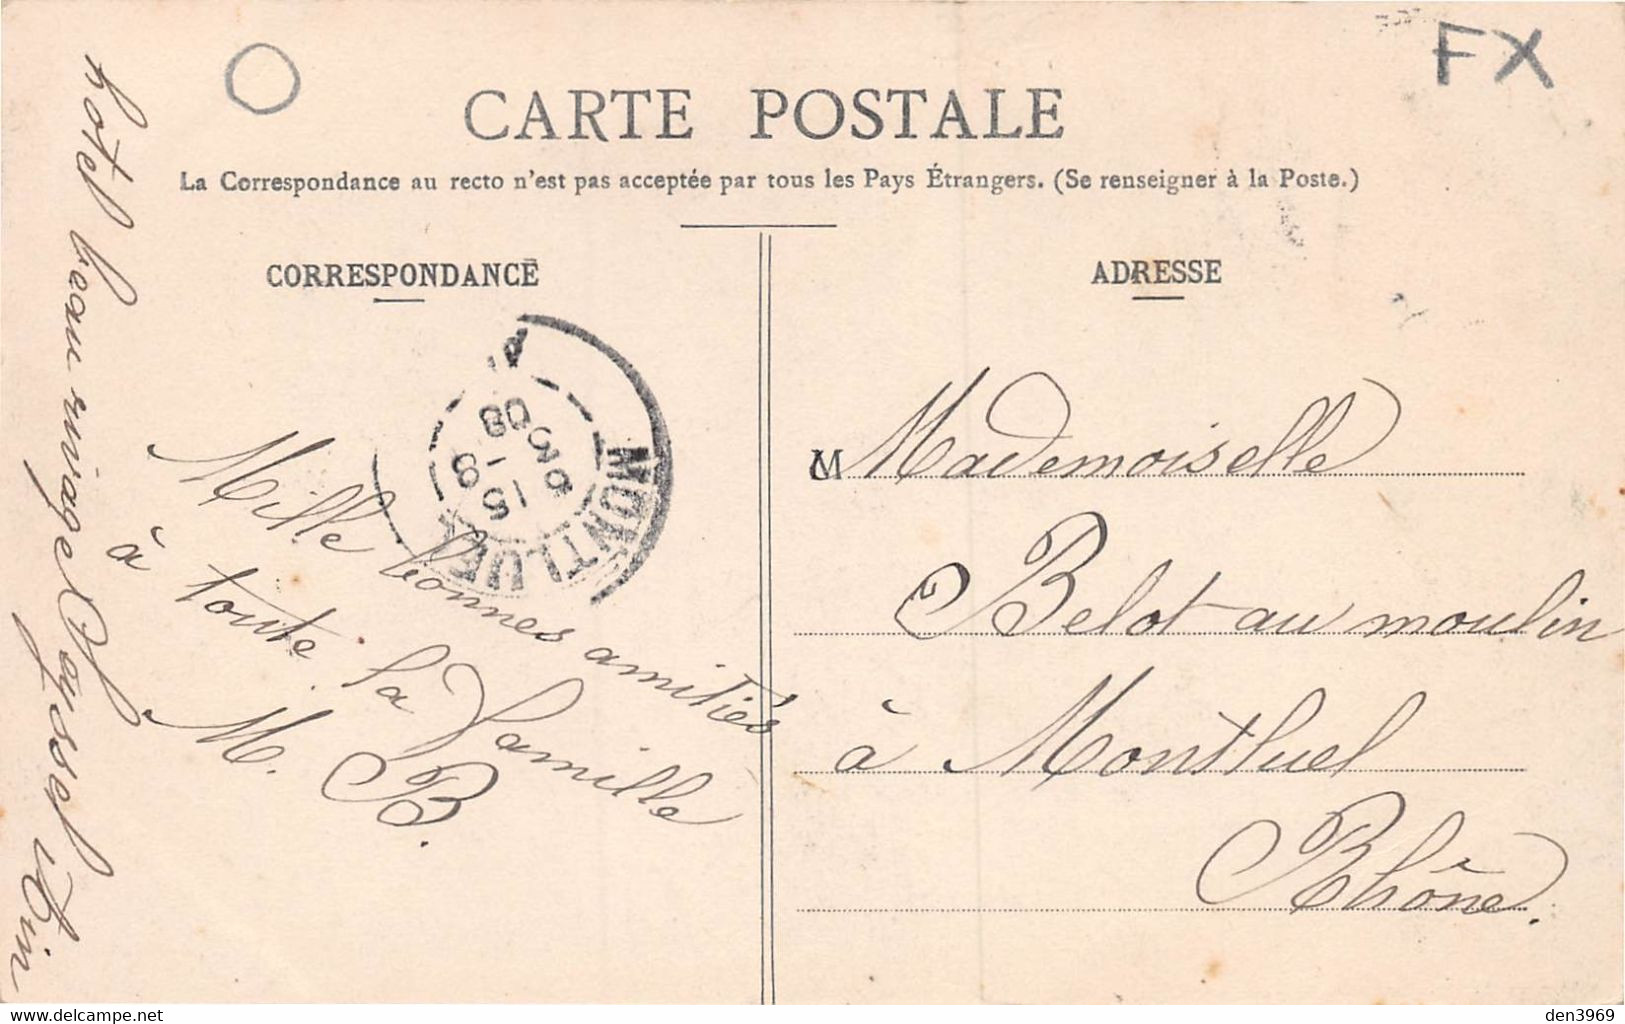 FX
CARTE POSTALE
La Correspondance au recto n'est pas acceptée par tous les Pays Étrangers. (Se renseigner à la Poste.)
CORRESPONDANCE
hotel beau rivage Seyssel Ain
MONTLUEL
15 - 9
08
Mille bonnes amitiés
à toute la famille
M. B.
ADRESSE
M Mademoiselle
Belot au moulin
à Montluel
Rhône.
https://www.delcampe.net
den3969